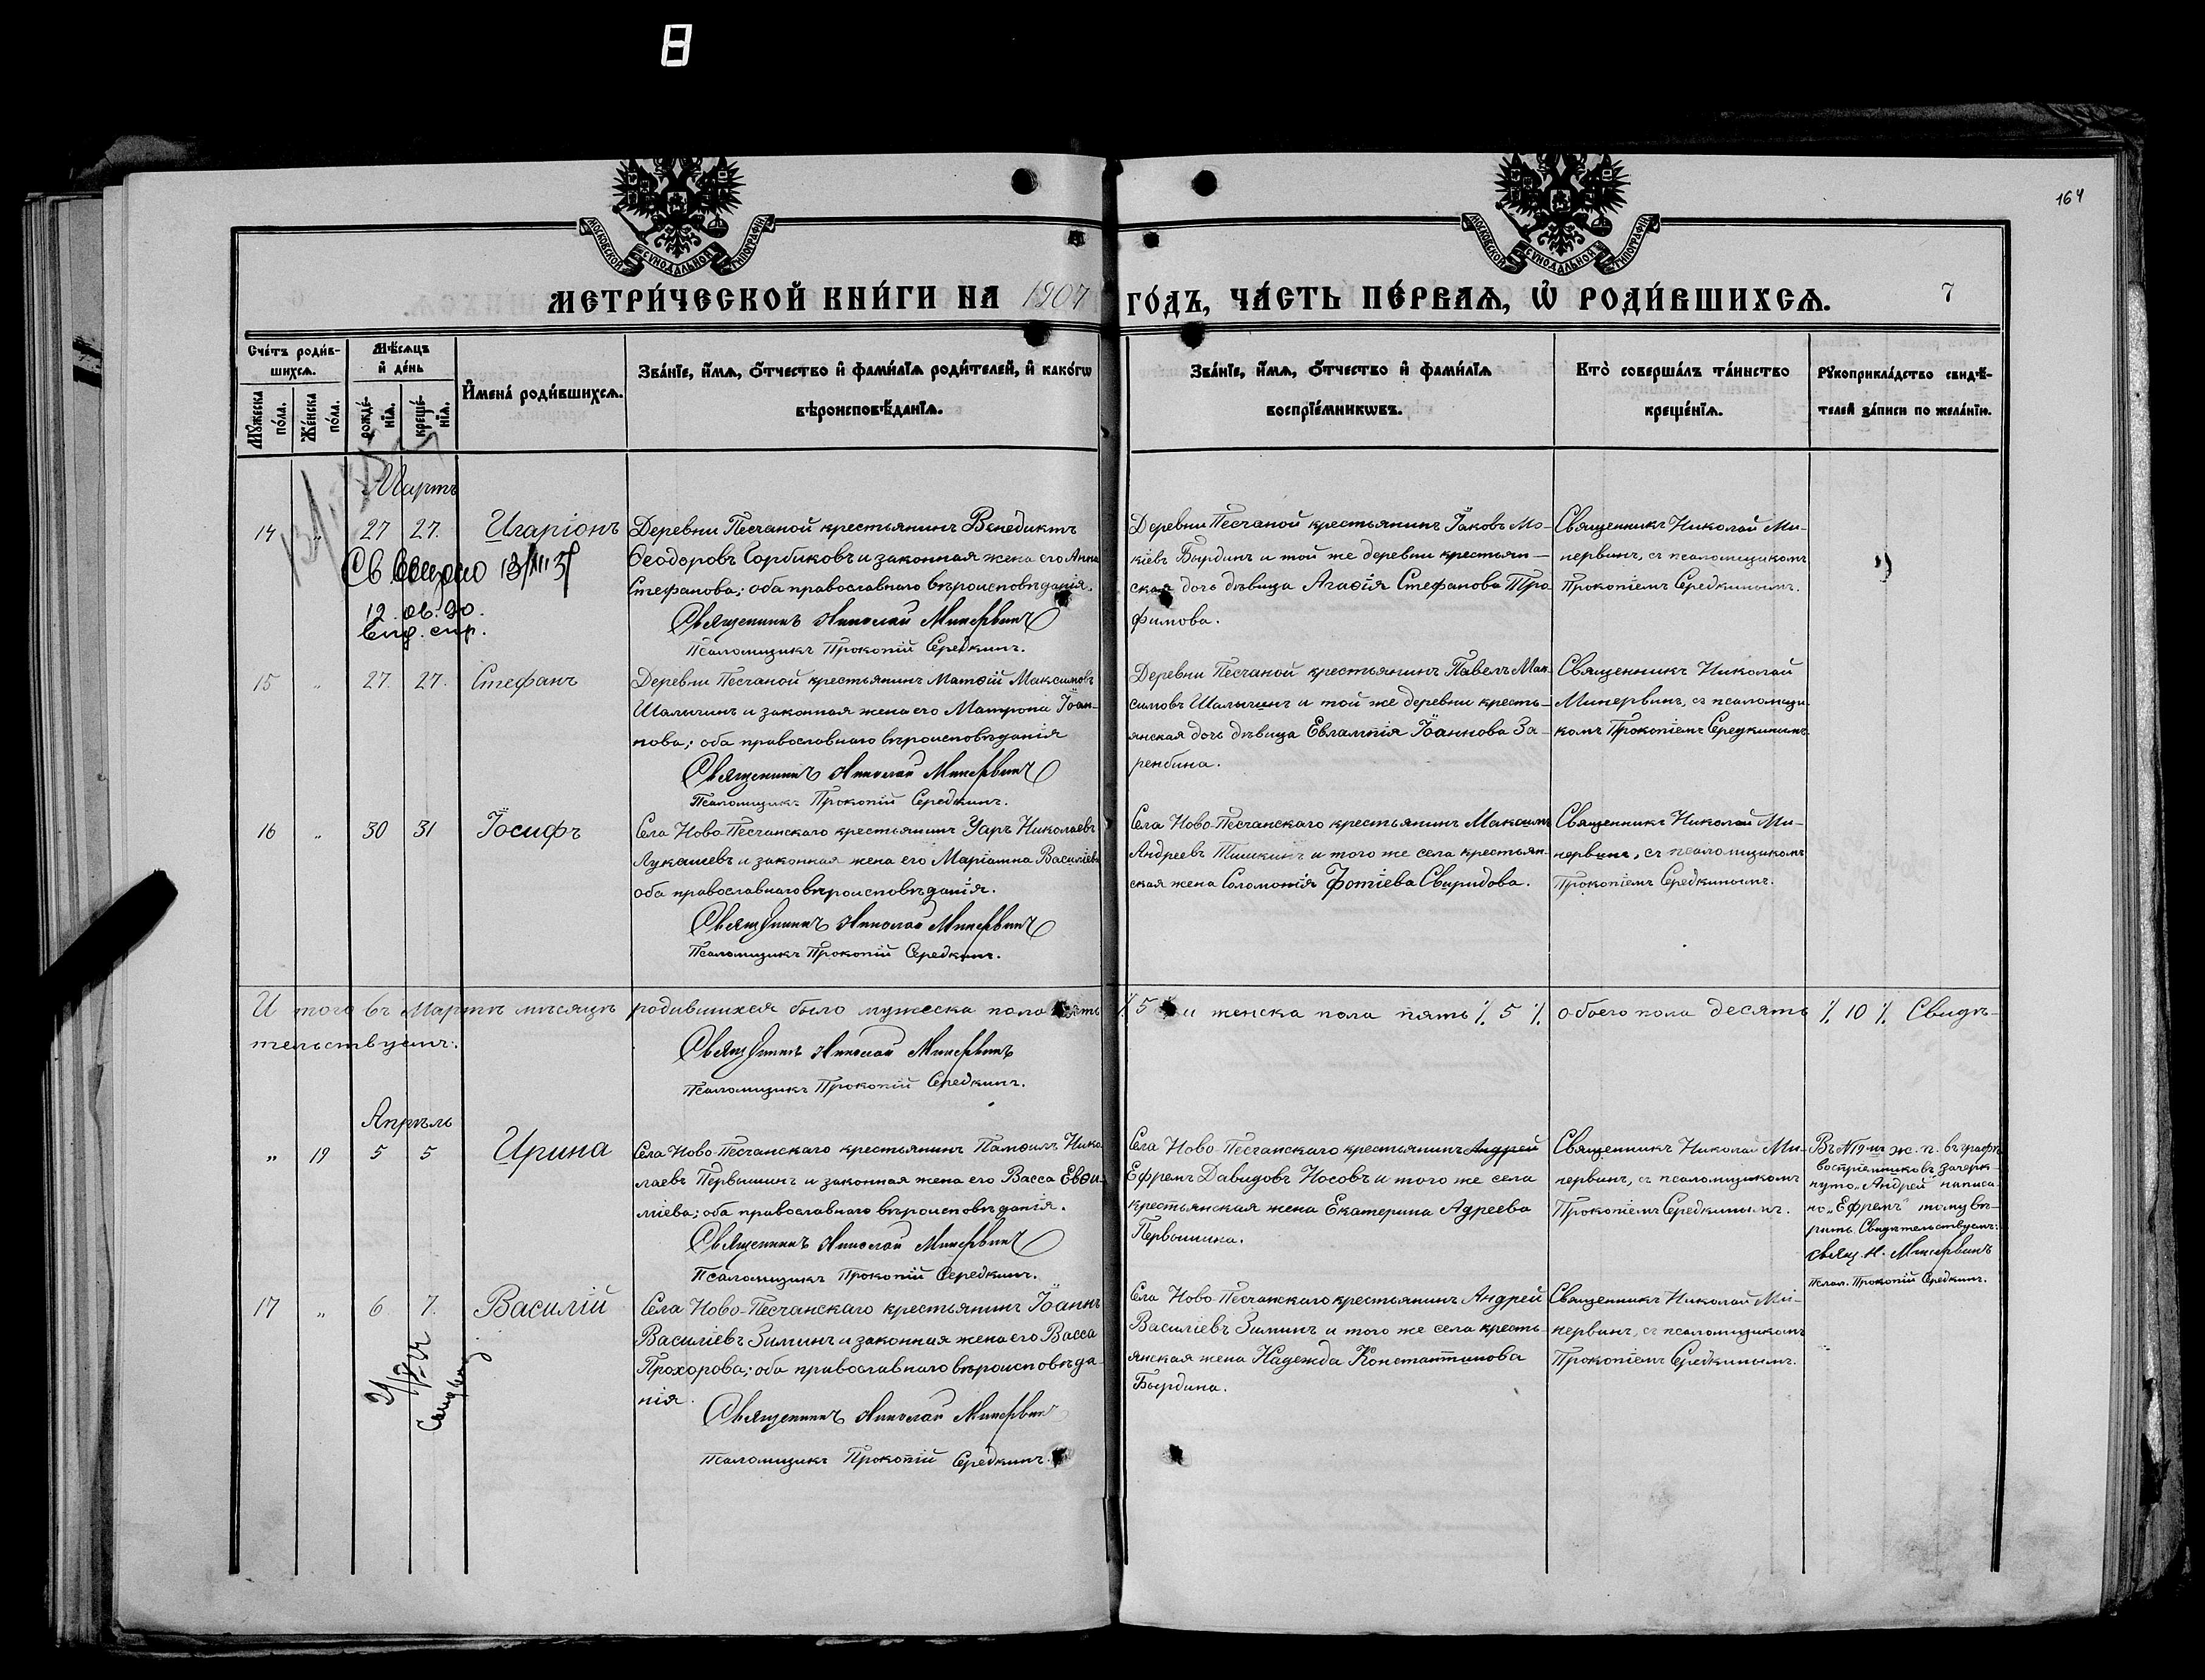 164
МОСКОВСКОЙ СѴНОДАЛЬНОЙ ТИПОГРАФІИ
МОСКОВСКОЙ СѴНОДАЛЬНОЙ ТИПОГРАФІИ
МЕТРИ́ЧЕСКОЙ КНИ́ГИ НА 1907 ГО́ДЪ, ЧА́СТЬ ПЕ́РВАѦ, Ѡ҆ РОДИ́ВШИХСѦ. 7
Сче́тъ роди́в-
шихсѧ.
Мѣ́сѧцъ
и҆ де́нь
Мꙋ́жеска
по́ла.
Же́нска
по́ла.
рожде́-
нїѧ.
креще́-
нїѧ.
И҆мена̀ роди́вшихсѧ.
Зва́нїе, и҆́мѧ, ѻ҆́тчество и҆ фами́лїѧ роди́телей, и҆ како́гѡ
вѣроисповѣ́данїѧ.
Зва́нїе, и҆́мѧ, ѻ҆́тчество и҆ фами́лїѧ
воспрїе́мникѡвъ.
Кто̀ соверша́лъ та́инство
креще́нїѧ.
Рꙋкоприкла́дство свидѣ́-
телей за́писи по жела́нїю.
Мартъ
14 " 27 27. Иларіонъ
Деревни Песчаной крестьянинъ Венедиктъ
Ѳеодоровъ Горбиковъ и законная жена его Анна
Стефанова; оба православнаго вѣроисповѣданія.
Священникъ Николай Минервинъ
Псаломщикъ Прокопій Середкинъ.
12.06.90.
Деревни Песчаной крестьянинъ Іаковъ Мо-
кіевъ Бырдинъ и той же деревни крестьян-
ская дочь дѣвица Агаѳія Стефанова Тро
фимова.
Священникъ Николай Ми-
нервинъ, съ псаломщикомъ
Прокопіемъ Середкинымъ.
15 " 27. 27. Стефанъ
Деревни Песчаной крестьянинъ Матѳій Максимовъ
Шалыгинъ и законная жена его Матрона Іоан-
нова; оба православнаго вѣроисповѣданія
Священникъ Николай Минервинъ
Псаломщикъ Прокопій Середкинъ.
Деревни Песчаной крестьянинъ Павелъ Мак-
симовъ Шалыгинъ и той же деревни кресть-
янская дочь дѣвица Евлампія Іоаннова За-
ренбина.
Священникъ Николай
Минервинъ, съ псаломщи-
комъ Прокопіемъ Середкинымъ
16 " 30 31 Іосифъ
Села Ново-Песчанскаго крестьянинъ Уаръ Николаевъ
Лукашевъ и законная жена его Маріамна Василіева
оба православнаго вѣроисповѣданія.
Священникъ Николай Минервинъ
Псаломщикъ Прокопій Середкинъ.
Села Ново-Песчанскаго крестьянинъ Максимъ
Андреевъ Тишкинъ и того же села крестьян-
ская жена Соломонія Фотіева Свиридова.
Священникъ Николай Ми-
нервинъ, съ псаломщикомъ
Прокопіемъ Середкинымъ.
И того въ Мартѣ мѣсяцѣ родившихся было мужеска пола пять ٪ 5 ٪ и женска пола пять ٪ 5 ٪ обоего пола десять ٪ 10 ٪ Свидѣ-
тельствуемъ:
Священникъ Николай Минервинъ
Псаломщикъ Прокопій Середкинъ.
Апрѣль
" 19 5 5 Ирина
Села Ново-Песчанскаго крестьянинъ Памфилъ Нико
лаевъ Первышинъ и законная жена его Васса Евѳи-
міева; оба православнаго вѣроисповѣданія.
Священникъ Николай Минервинъ
Псаломщикъ Прокопій Середкинъ.
Села Ново-Песчанскаго крестьянинъ Андрей
Ефремъ Давидовъ Носовъ и того же села
крестьянская жена Екатерина Адреева
Первышина.
Священникъ Николай Ми-
нервинъ, съ псаломщикомъ
Прокопіемъ Середкинымъ.
Въ №19-мъ ж. п. въ графѣ
воспріемниковъ зачерк-
нуто „Андрей" написа-
но „Ефремъ" тому вѣ-
рить. Свидѣтельствуемъ:
Свящ. Н. Минервинъ
Псал. Прокопій Середкинъ.
17 " 6. 7. Василій
Села Ново-Песчанскаго крестьянинъ Іоаннъ
Василіевъ Зиминъ и законная жена его Васса
Прохорова; оба православнаго вѣроисповѣда-
нія.
Священникъ Николай Минервинъ
Псаломщикъ Прокопій Середкинъ.
Села Ново-Песчанскаго крестьянинъ Андрей
Василіевъ Зиминъ и того же села кресть-
янская жена Надежда Константинова
Бырдина.
Священникъ Николай Ми-
нервинъ, съ псаломщикомъ
Прокопіемъ Середкинымъ.